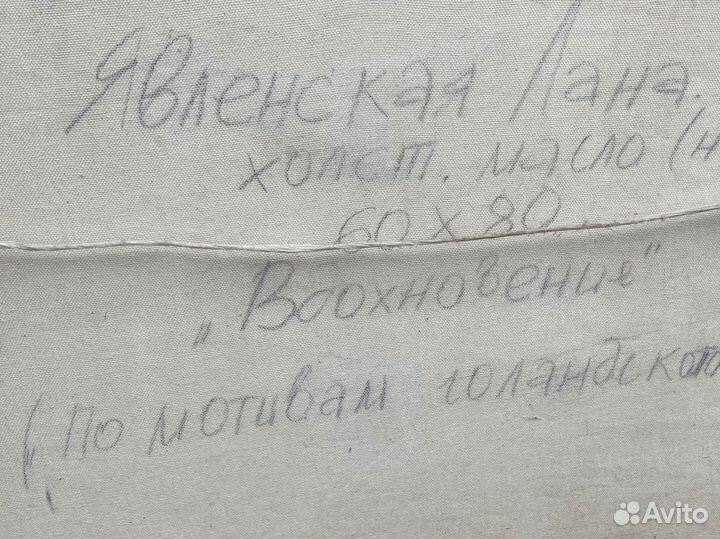 Явленская Лана.
холст. масло (н
60 х 80
"Вдохновение"
("По мотивам голандского
Avito